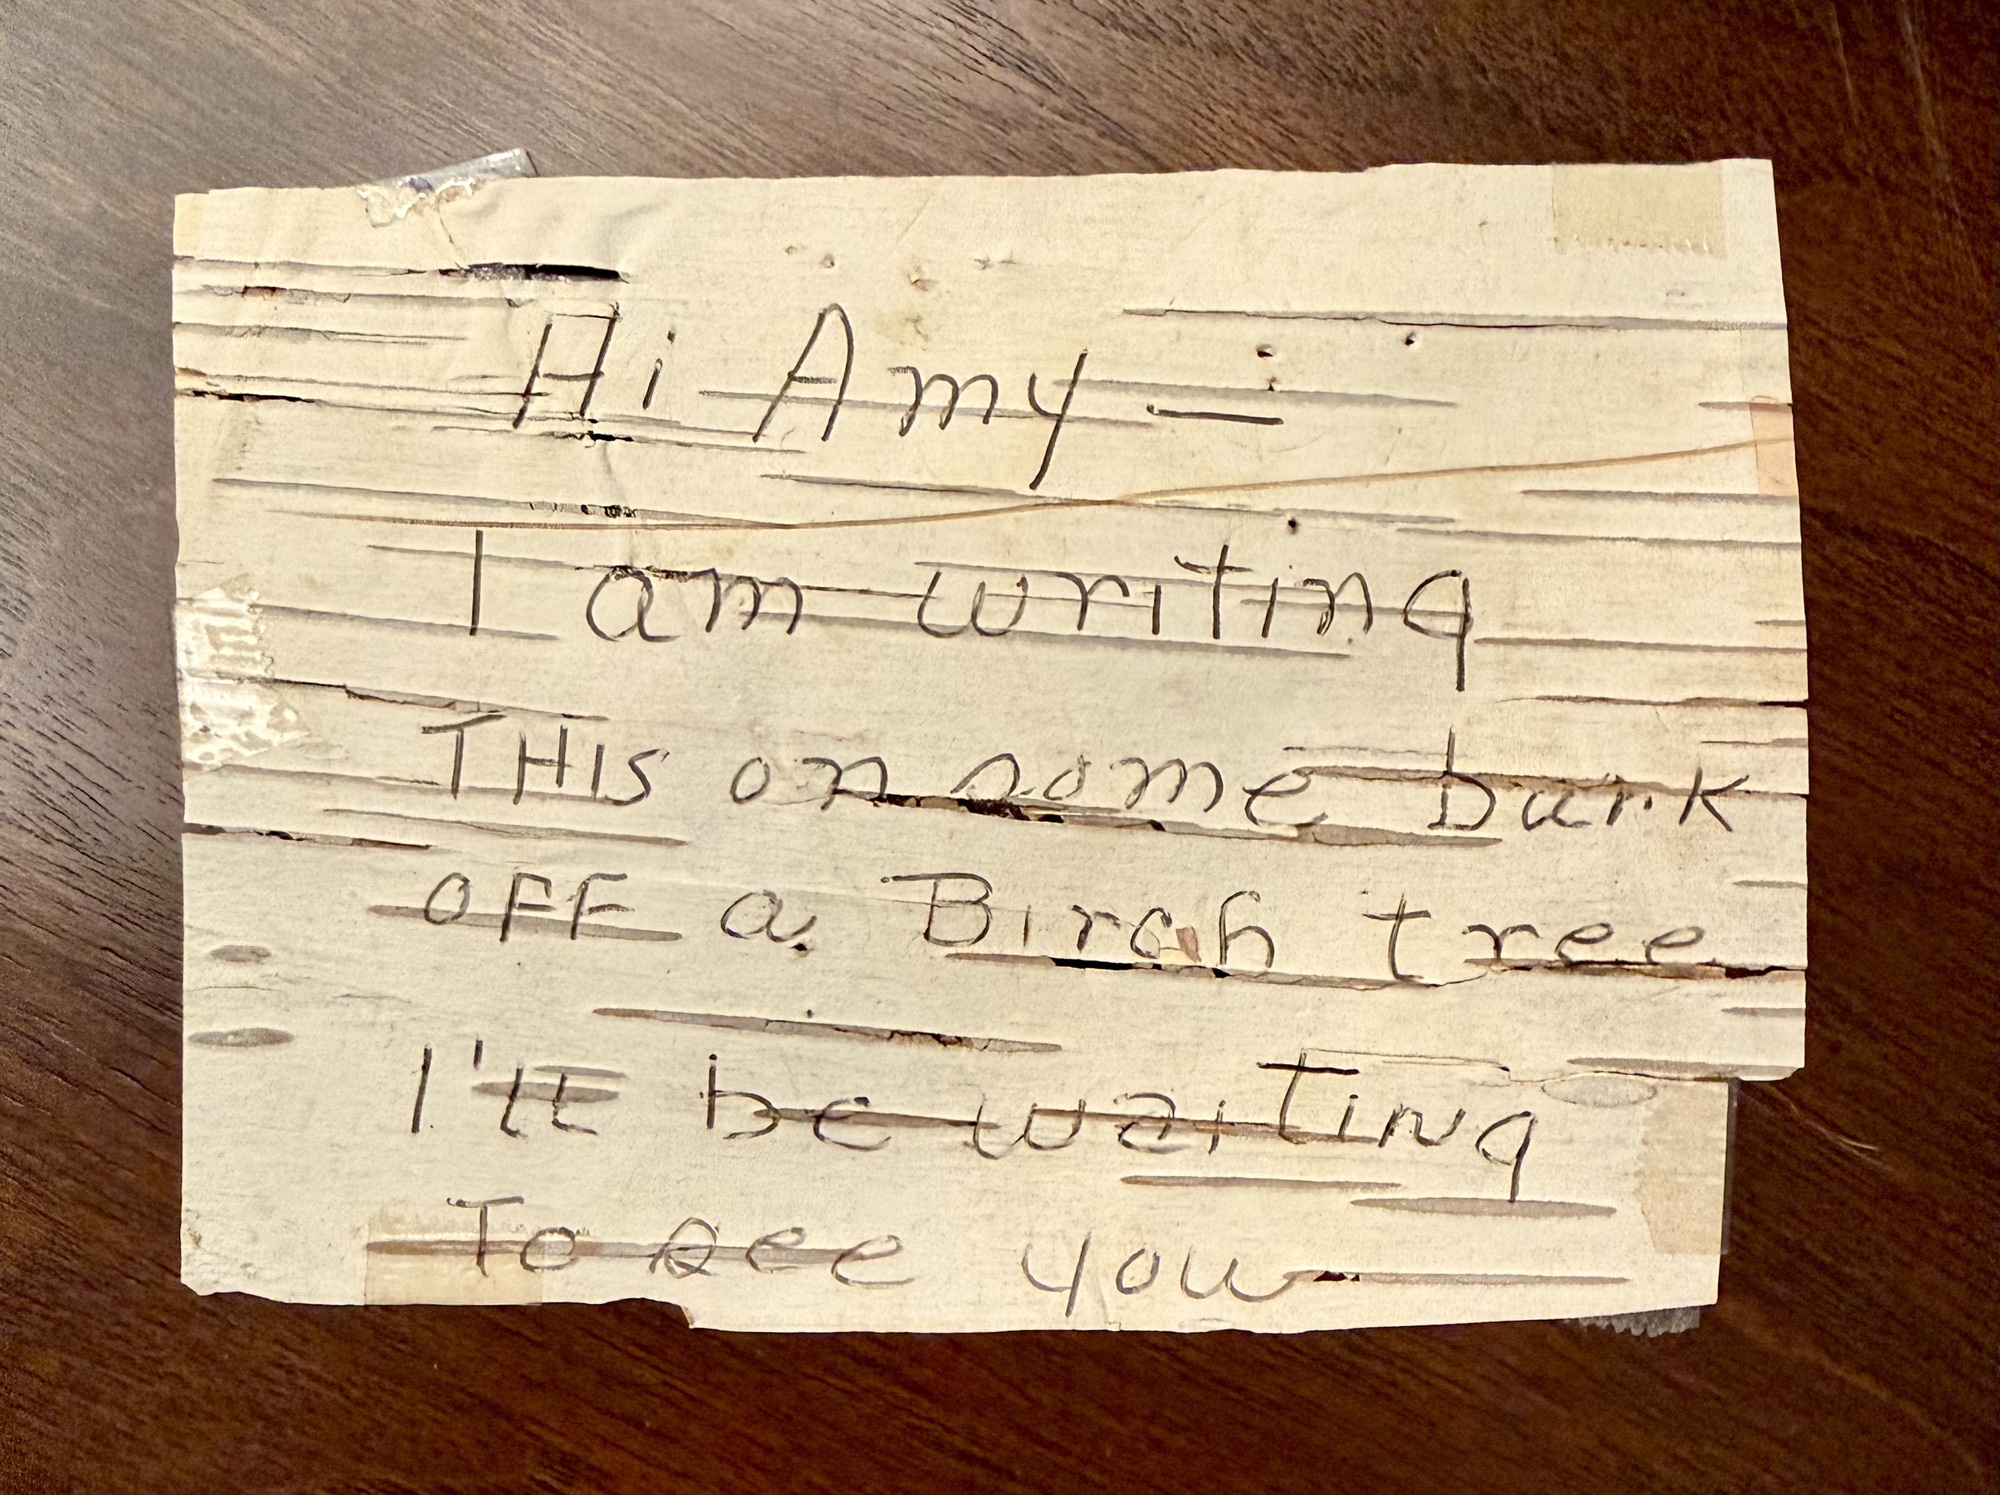 Hi Amy —
I am writing
THIS on some bark
OFF a Birch tree
I'll be waiting
To see you